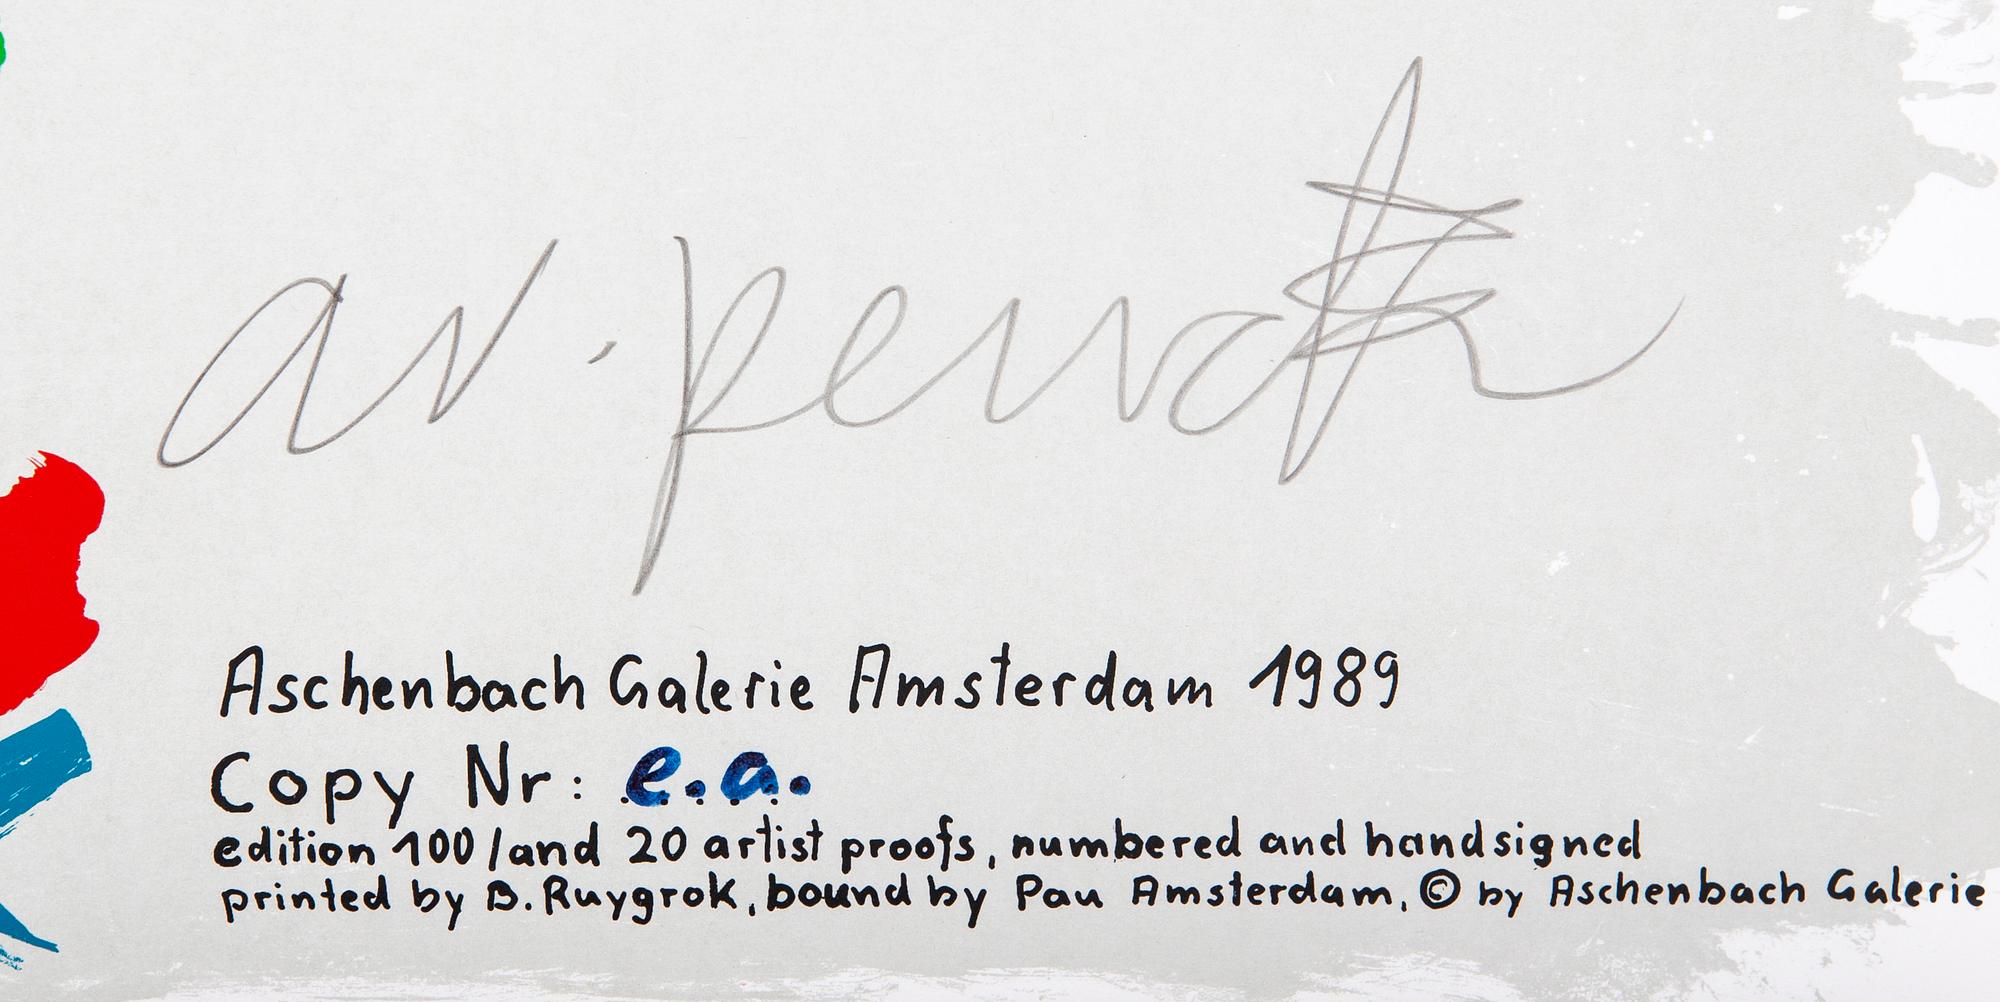 ar. penck
Aschenbach Galerie Amsterdam 1989
Copy Nr: e.a.
edition 100/and 20 artist proofs, numbered and handsigned
printed by B. Ruygrok, bound by Pau Amsterdam, © by Aschenbach Galerie